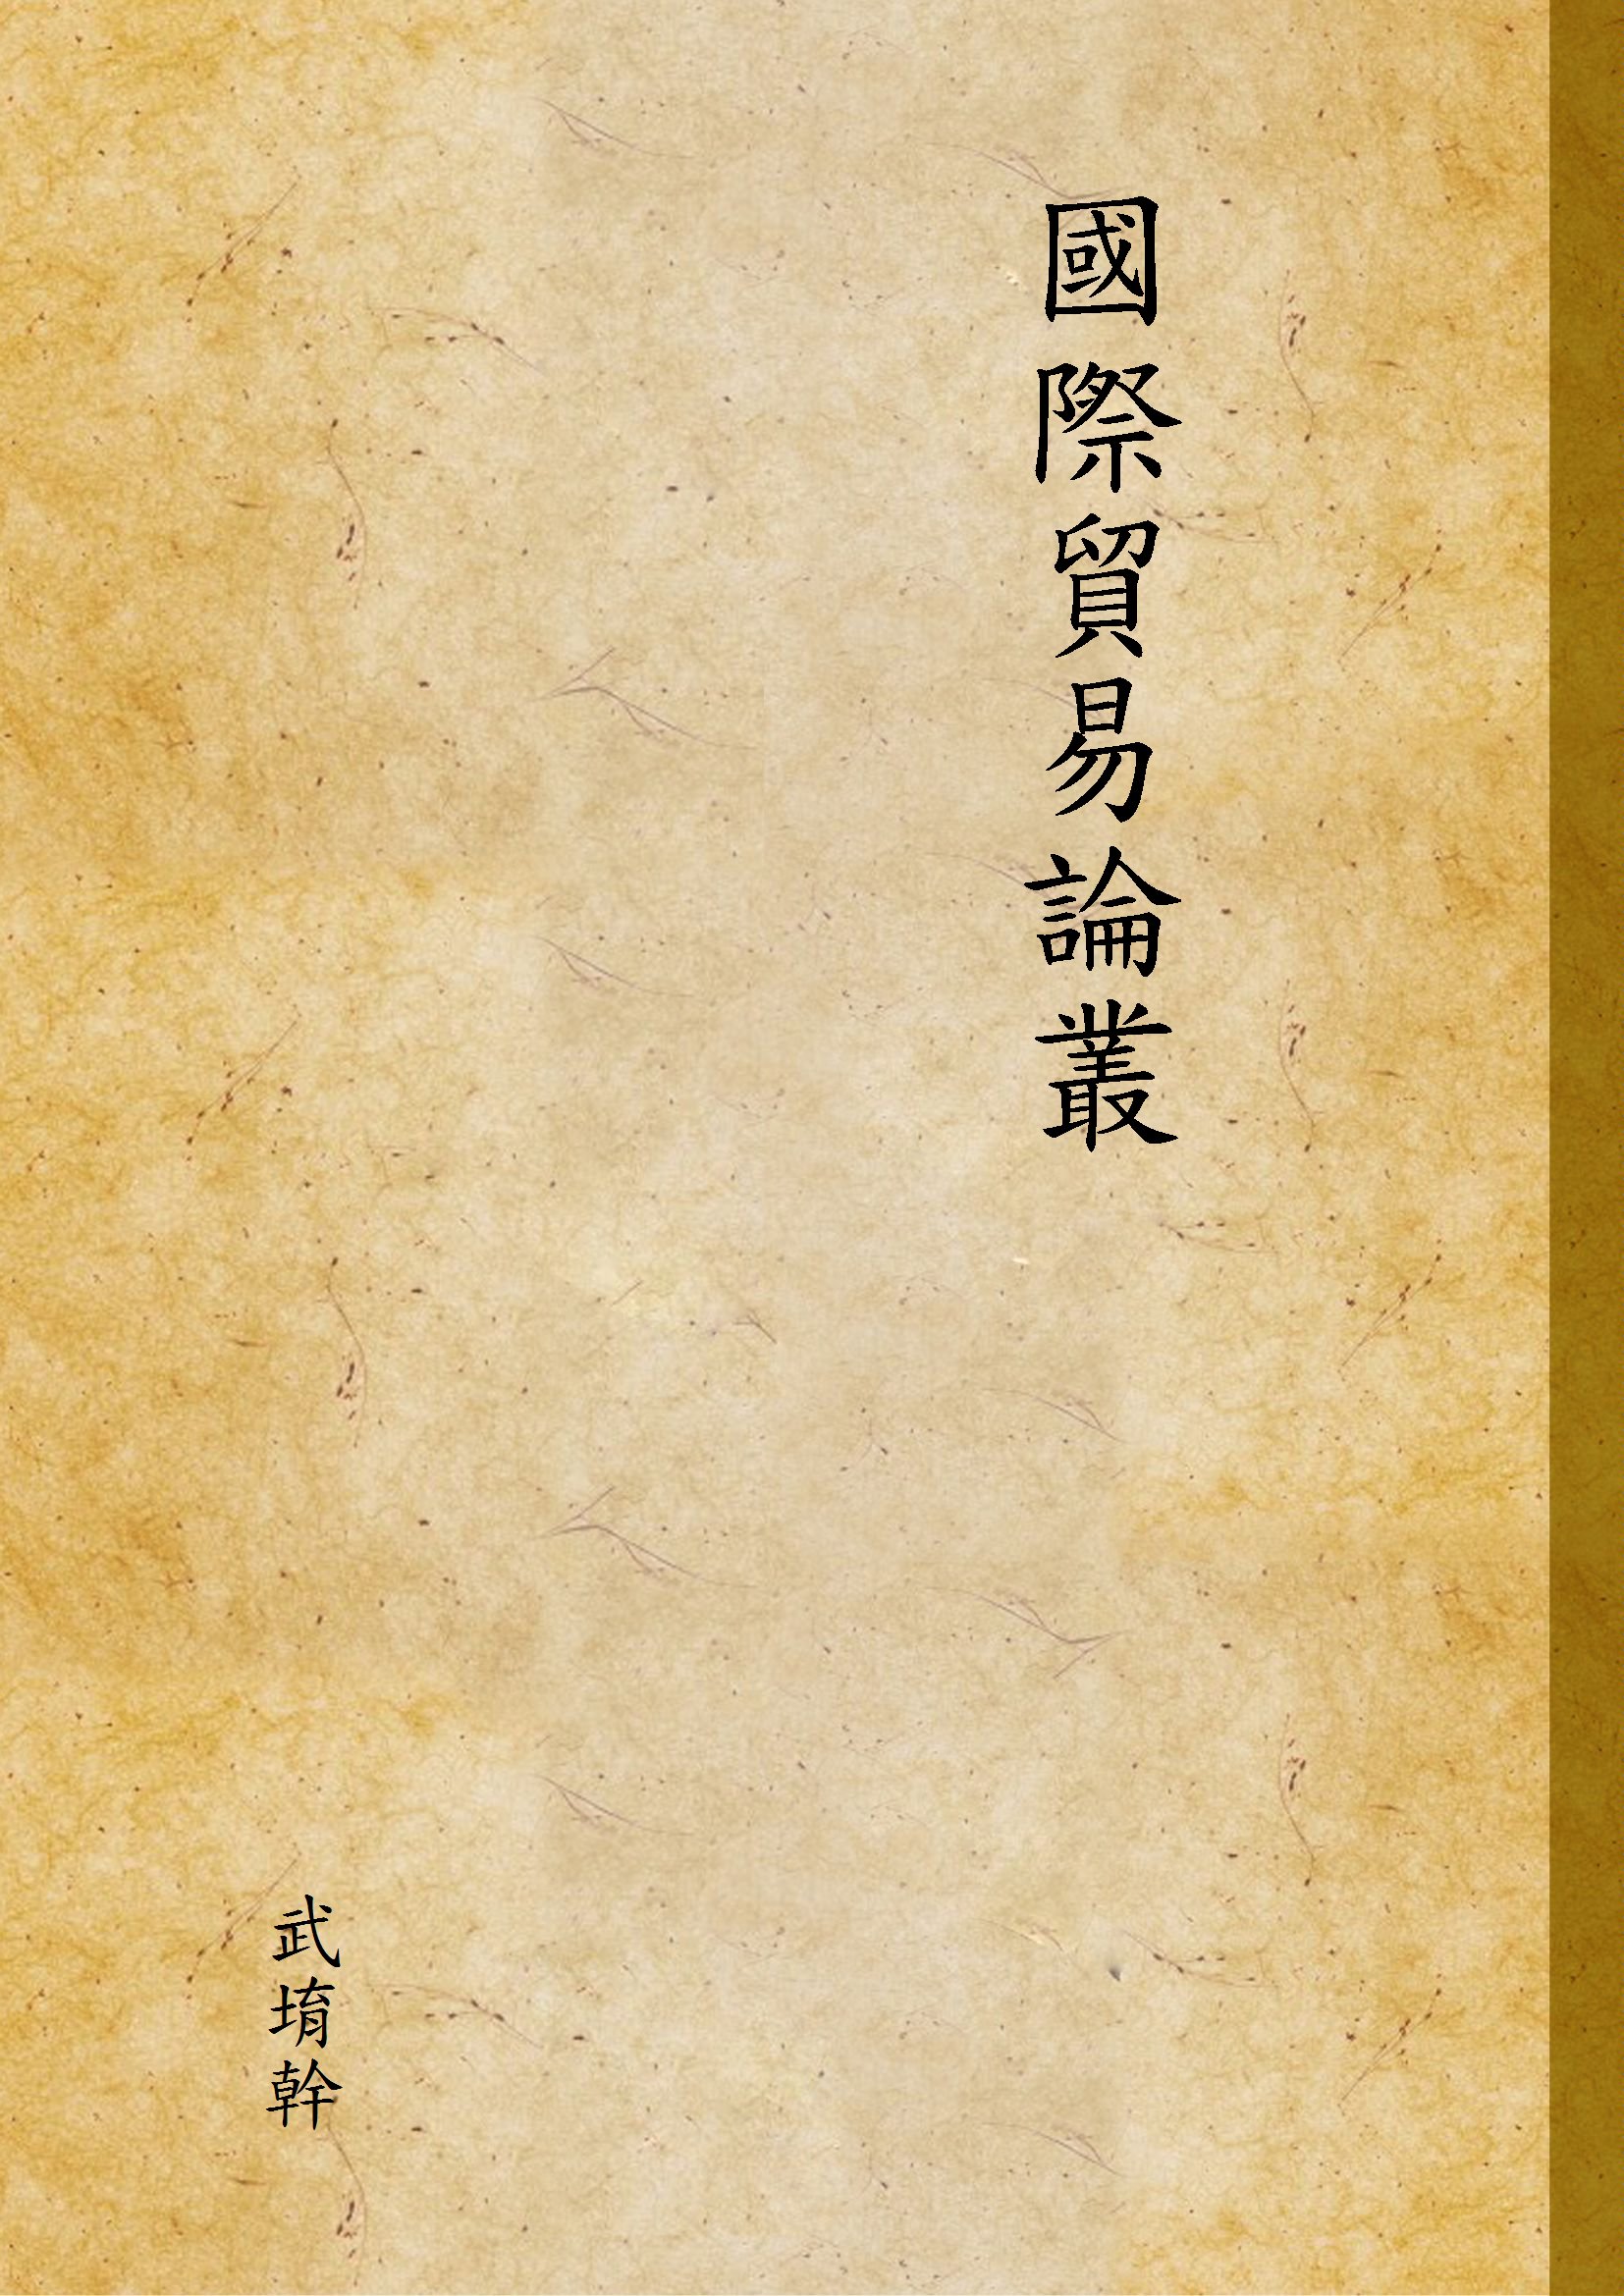 國際貿易論叢
武堉幹